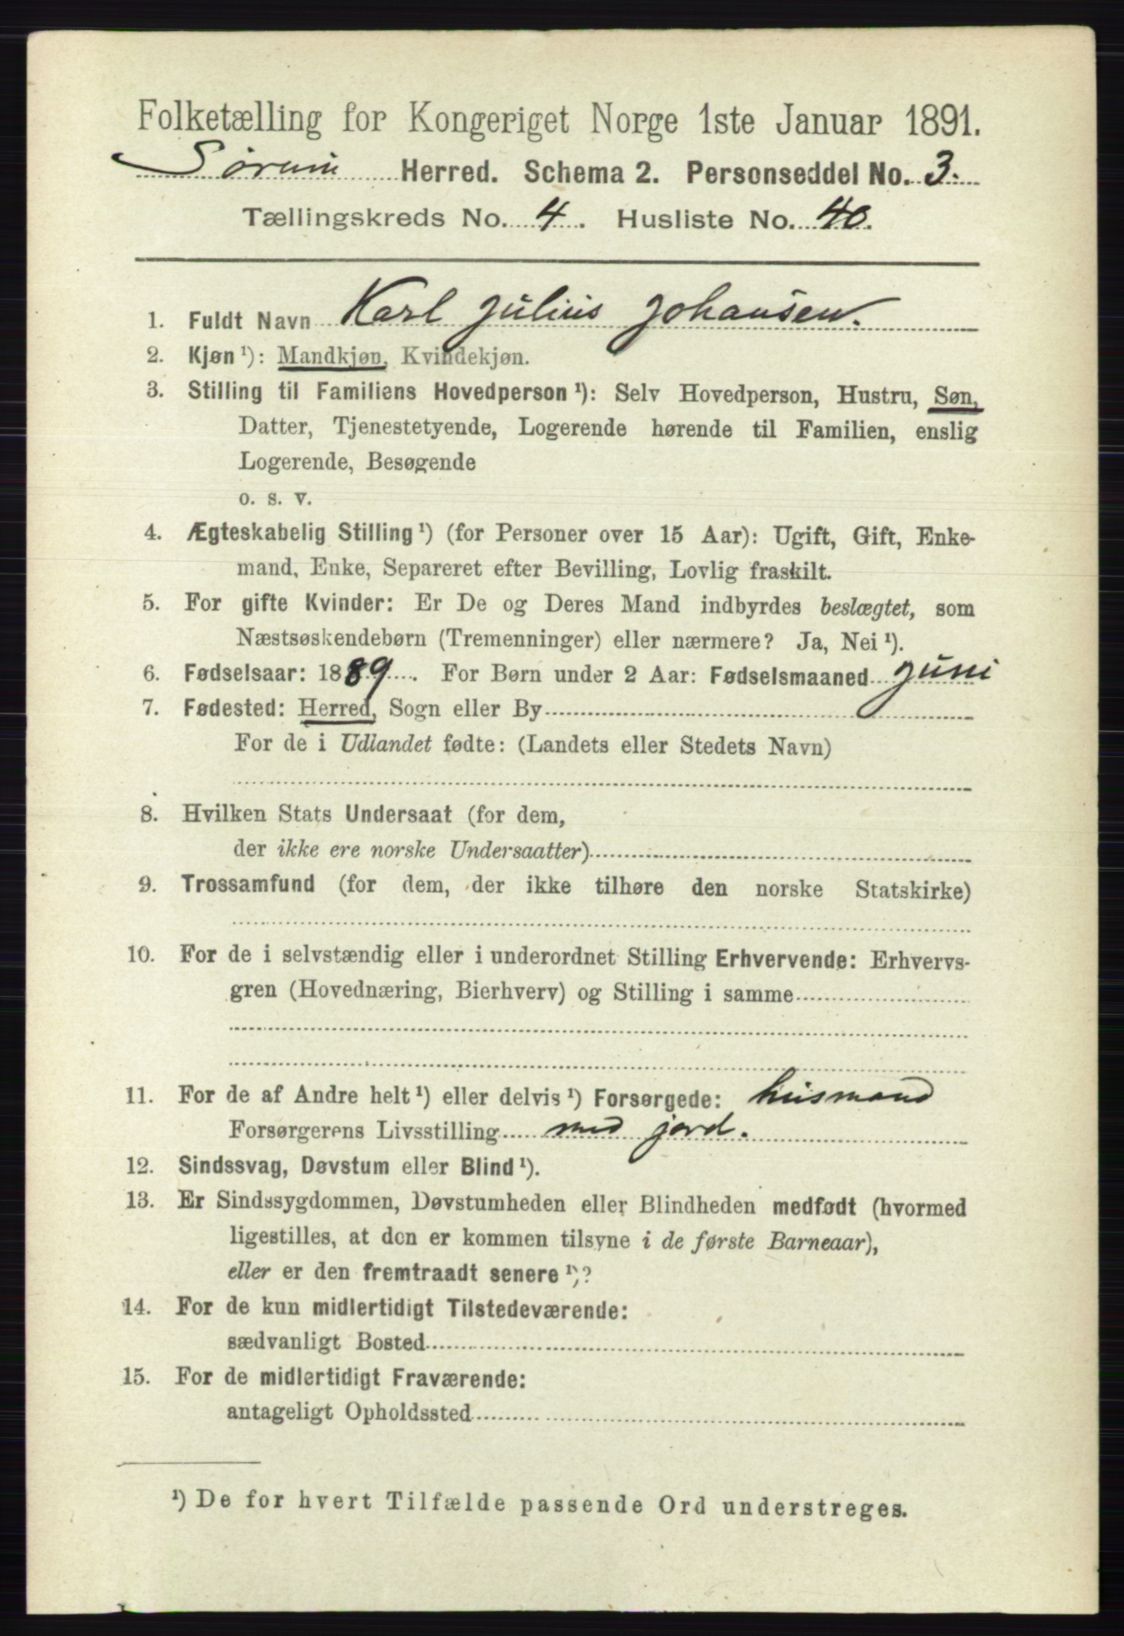 Folketælling for Kongeriget Norge 1ste Januar 1891.
Sørum Herred. Schema 2. Personseddel No. 3.
Tællingskreds No. 4. Husliste No. 40.
1. Fuldt Navn Karl Julius Johansen.
2. Kjøn ¹): Mandkjøn, Kvindekjøn.
3. Stilling til Familiens Hovedperson ¹): Selv Hovedperson, Hustru, Søn,
Datter, Tjenestetyende, Logerende hørende til Familien, enslig
Logerende, Besøgende
o. s. v.
4. Ægteskabelig Stilling ¹) (for Personer over 15 Aar): Ugift, Gift, Enke-
mand, Enke, Separeret efter Bevilling, Lovlig fraskilt.
5. For gifte Kvinder: Er De og Deres Mand indbyrdes beslægtet, som
Næstsøskendebørn (Tremenninger) eller nærmere? Ja, Nei ¹).
6. Fødselsaar: 1889. For Børn under 2 Aar: Fødselsmaaned Juni
7. Fødested: Herred, Sogn eller By
For de i Udlandet fødte: (Landets eller Stedets Navn)
8. Hvilken Stats Undersaat (for dem,
der ikke ere norske Undersaatter)
9. Trossamfund (for dem, der ikke tilhøre den norske Statskirke)
10. For de i selvstændig eller i underordnet Stilling Erhvervende: Erhvervs-
gren (Hovednæring, Bierhverv) og Stilling i samme
11. For de af Andre helt ¹) eller delvis ¹) Forsørgede: husmand
Forsørgerens Livsstilling med jord.
12. Sindssvag, Døvstum eller Blind ¹).
13. Er Sindssygdommen, Døvstumheden eller Blindheden medfødt (hvormed
ligestilles, at den er kommen tilsyne i de første Barneaar),
eller er den fremtraadt senere ¹)?
14. For de kun midlertidigt Tilstedeværende:
sædvanligt Bosted
15. For de midlertidigt Fraværende:
antageligt Opholdssted
¹) De for hvert Tilfælde passende Ord understreges.